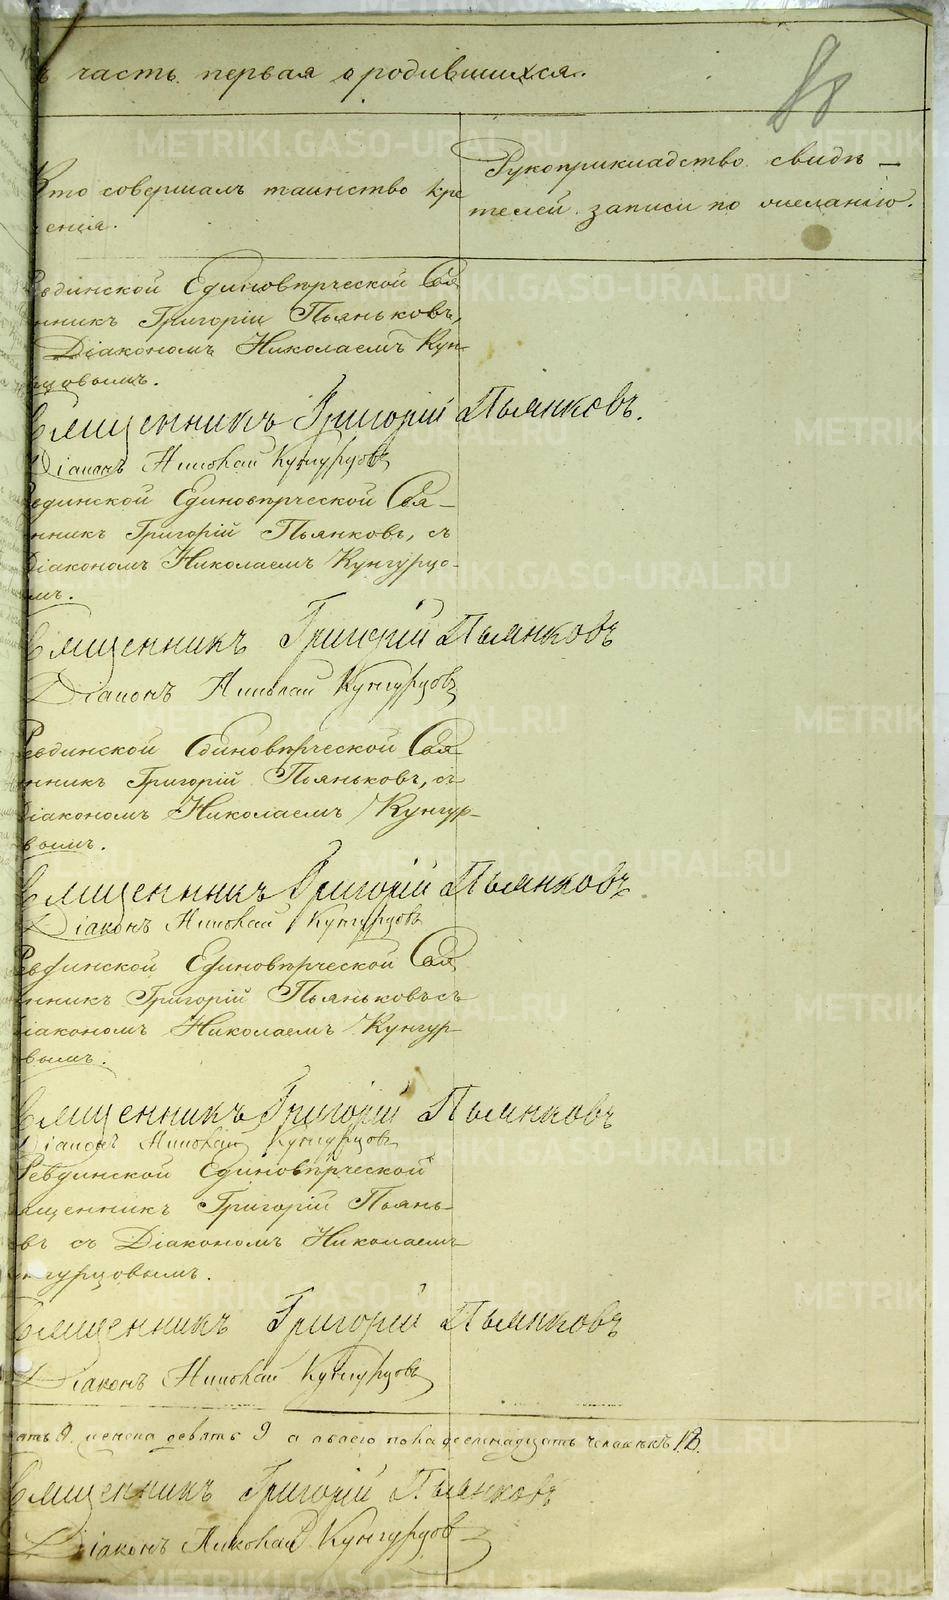 часть первая о родившихся.
Кто совершалъ таинство кре
щенія.
Рукоприкладство свидѣ—
телей записи по желанію.
Ревдинской Единовѣрческой Свя
нникъ Григорій Пьяньковъ,
Діакономъ Николаемъ Кун-
цовымъ.
Священникъ Григорій Пьянковъ.
Діаконъ Николай Кунгурцовъ
Ревдинской Единовѣрческой Свя—
нникъ Григорій Пьянковъ, съ
Діакономъ Николаемъ Кунгурцо-
мъ.
Священникъ Григорій Пьянковъ
Діаконъ Николай Кунгурцовъ
Ревдинской Единовѣрческой Свя
нникъ Григорій Пьяньковъ, съ
Діакономъ Николаемъ Кунгур-
вымъ.
Священникъ Григорій Пьянковъ
Діаконъ Николай Кунгурцовъ
Ревдинской Единовѣрческой Свя
нникъ Григорій Пьяньковъ съ
Діакономъ Николаемъ Кунгур-
вымъ.
Священникъ Григорій Пьянковъ
Діаконъ Николай Кунгурцовъ
Ревдинской Единовѣрческой
ященникъ Григорій Пьянь-
въ съ Діакономъ Николаемъ
нгурцовымъ.
Священникъ Григорій Пьянковъ
Діаконъ Николай Кунгурцовъ
ять 9. женска девять 9 а всего пола человѣкъ 18.
Священникъ Григорій Пьянковъ
Діаконъ Николай Кунгурцовъ
METRIKI.GASO-URAL.RU